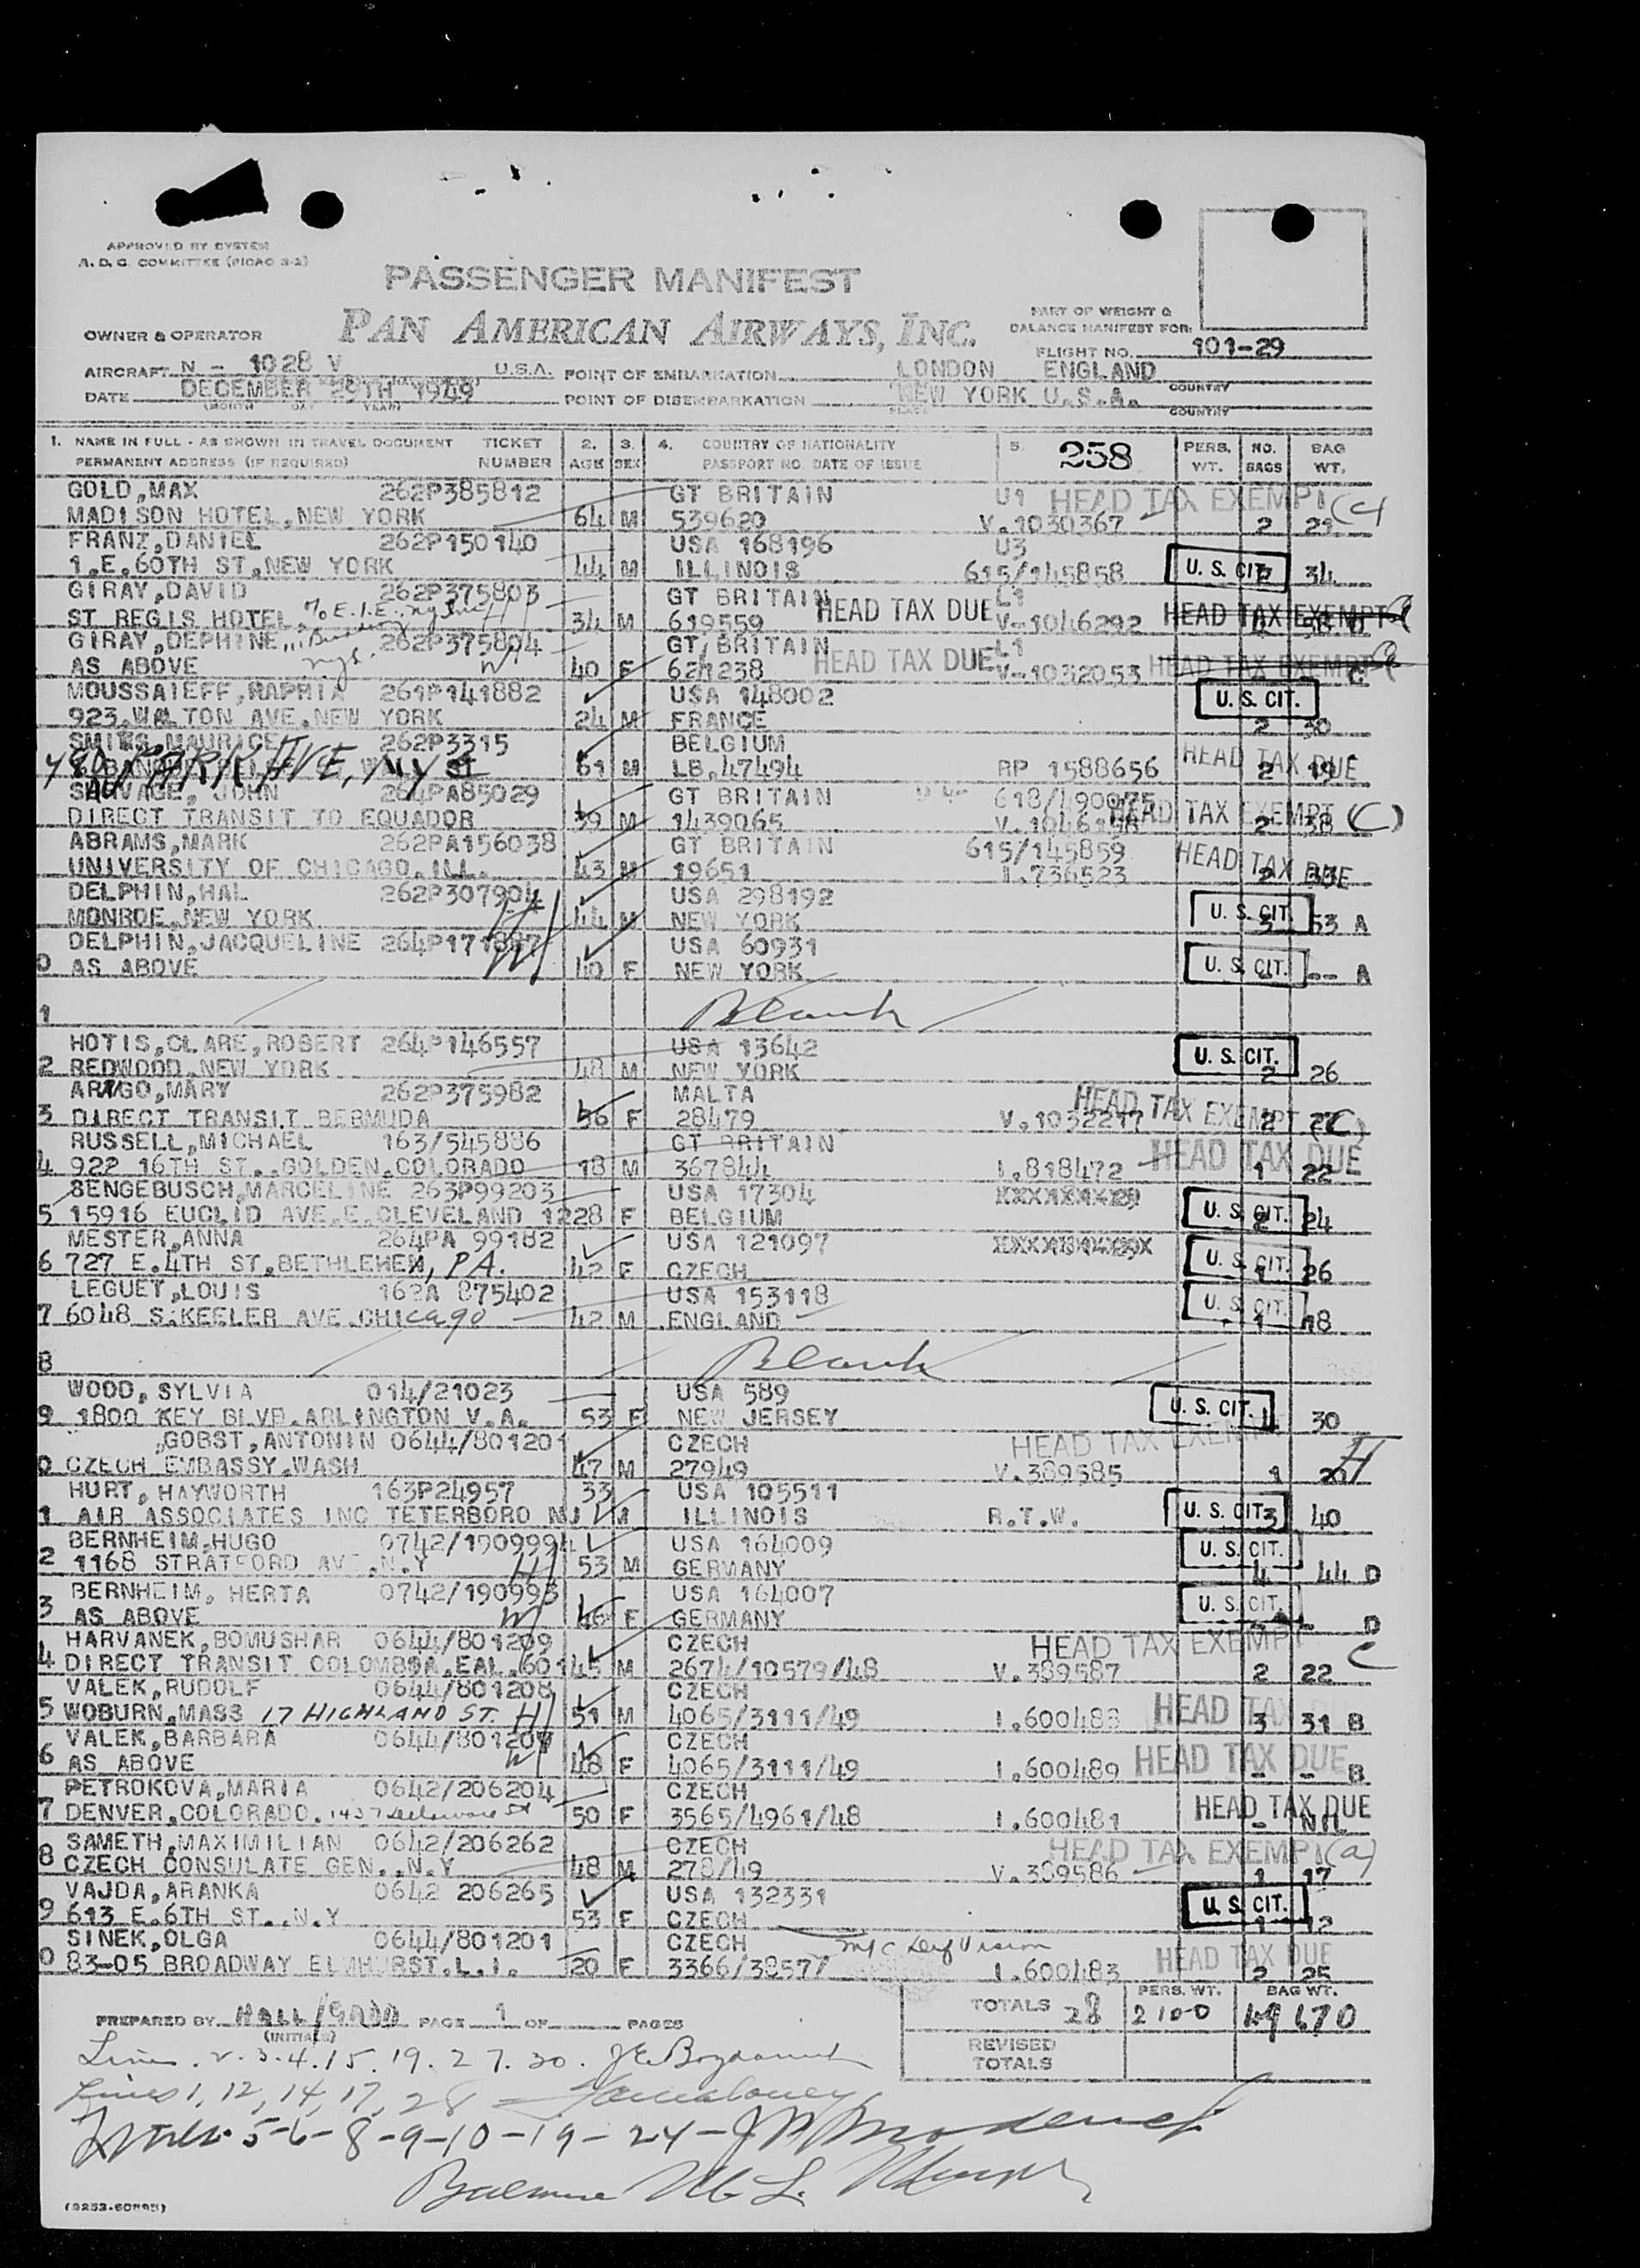 APPROVED BY SYSTEM
A. D. C. COMMITTEE (PICAO 3-2)
PASSENGER MANIFEST
OWNER & OPERATOR PAN AMERICAN AIRWAYS, INC.
PART OF WEIGHT &
BALANCE MANIFEST FOR:
FLIGHT NO. 101-29
AIRCRAFT N - 1028 V U.S.A. POINT OF EMBARKATION LONDON ENGLAND
COUNTRY
DATE DECEMBER 29TH 1949 POINT OF DISEMBARKATION NEW YORK U.S.A.
(MONTH DAY YEAR) PLACE COUNTRY
1. NAME IN FULL - AS SHOWN IN TRAVEL DOCUMENT TICKET 2. 3. 4. COUNTRY OF NATIONALITY 5. 258 PERS. NO. BAG
PERMANENT ADDRESS (IF REQUIRED) NUMBER AGE SEX PASSPORT NO. DATE OF ISSUE WT. BAGS WT.
GOLD,MAX 262P385812 GT BRITAIN U1 HEAD TAX EXEMPT (C)
MADISON HOTEL,NEW YORK 64 M 539620 V.1030367 2 21
FRANZ,DANIEL 262P150140 USA 168196 U3
1.E.60TH ST,NEW YORK 44 M ILLINOIS 615/145858 U. S. CIT. 34
GIRAY,DAVID 262P375803 GT BRITAIN L1
ST REGIS HOTEL, 34 M 619559 HEAD TAX DUE V-1046292 HEAD TAX EXEMPT
GIRAY,DEPHINE, 262P375804 GT BRITAIN L1
AS ABOVE 40 F 621238 HEAD TAX DUE V-1032053 HEAD TAX EXEMPT C
MOUSSAIEFF,RAPHIA 261P141882 USA 148002 U. S. CIT.
923,WALTON AVE,NEW YORK 24 M FRANCE 2 30
SMITS,MAURICE 262P3315 BELGIUM
480 PARK AVE, NY 61 M LB.47494 RP 1588656 HEAD TAX DUE 2 19
SAUVAGE, JOHN 264PA85029 GT BRITAIN 618/490075
DIRECT TRANSIT TO EQUADOR 39 M 1439065 V.1046198 HEAD TAX EXEMPT (C) 2 38
ABRAMS,MARK 262PA156038 GT BRITAIN 615/145859
UNIVERSITY OF CHICAGO.ILL. 43 M 19651 I.736523 HEAD TAX DUE 2 33
DELPHIN,HAL 262P307904 USA 298192
MONROE,NEW YORK 44 M NEW YORK U. S. CIT. 3 53 A
DELPHIN,JACQUELINE 264P171887 USA 60931
0 AS ABOVE 40 F NEW YORK U. S. CIT. -- A
1 Blank
HOTIS,CLARE,ROBERT 264P146557 USA 13642
2 REDWOOD,NEW YORK 48 M NEW YORK U. S. CIT. 2 26
ARIGO,MARY 262P375982 MALTA
3 DIRECT TRANSIT BERMUDA 56 F 28479 V.1032217 HEAD TAX EXEMPT (C) 2 27
RUSSELL,MICHAEL 163/545886 GT BRITAIN
4 922 16TH ST.,GOLDEN,COLORADO 18 M 367844 I.818472 HEAD TAX DUE 1 22
SENGEBUSCH,MARCELINE 263P99203 USA 17304
5 15916 EUCLID AVE.E.CLEVELAND 12 28 F BELGIUM U. S. CIT. 2 24
MESTER,ANNA 264PA 99182 USA 121097
6 727 E.4TH ST,BETHLEHEM, PA. 42 F CZECH U. S. CIT. 1 26
LEGUET,LOUIS 162A 875402 USA 153118
7 6048 S.KEELER AVE.CHICAGO 42 M ENGLAND U. S. CIT. 1 18
8 Blank
WOOD, SYLVIA 014/21023 USA 589
9 1800 KEY BLVD.ARLINGTON V.A. 53 F NEW JERSEY U. S. CIT. 1 30
GOBST,ANTONIN 0644/801201 CZECH HEAD TAX EXEMPT
0 CZECH EMBASSY,WASH 47 M 27949 V.389585 1 20
HURT, HAYWORTH 163P24957 33 USA 105511
1 AIR ASSOCIATES INC TETERBORO NJ M ILLINOIS R.T.W. U. S. CIT. 3 40
BERNHEIM,HUGO 0742/1909994 USA 164009
2 1168 STRATFORD AVE,N.Y 53 M GERMANY U. S. CIT. 4 44 D
BERNHEIM, HERTA 0742/190993 USA 164007
3 AS ABOVE 46 F GERMANY U. S. CIT. D
HARVANEK,BOMUSHAR 0644/801209 CZECH HEAD TAX EXEMPT C
4 DIRECT TRANSIT COLOMBIA,EAL,601 45 M 2674/10579/48 V.389587 2 22
VALEK,RUDOLF 0644/801208 CZECH
5 WOBURN,MASS 17 HIGHLAND ST. 51 M 4065/3111/49 I.600488 HEAD TAX DUE 3 31 B
VALEK,BARBARA 0644/801207 CZECH
6 AS ABOVE 48 F 4065/3111/49 I.600489 HEAD TAX DUE - - B
PETROKOVA,MARIA 0642/206204 CZECH
7 DENVER,COLORADO. 1437 Delaware St 50 F 3565/4961/48 I.600481 HEAD TAX DUE - NIL
SAMETH,MAXIMILIAN 0642/206262 CZECH HEAD TAX EXEMPT (a)
8 CZECH CONSULATE GEN.,N.Y 48 M 278/49 V.389586 1 17
VAJDA,ARANKA 0642 206265 USA 132331
9 613 E.6TH ST.,N.Y 53 F CZECH U. S. CIT. 1 12
SINEK,OLGA 0644/801201 CZECH
0 83-05 BROADWAY ELMHURST.L.I. 20 F 3366/38577 I.600483 HEAD TAX DUE 2 25
TOTALS 28 PERS. WT. 2100 BAG WT. 49 670
PREPARED BY HALL/ PAGE 1 OF PAGES
(INITIALS)
REVISED
TOTALS
Lines 2. 3. 4. 15. 19. 27. 30.
Lines 1, 12, 14, 17, 28
Lines 5-6-8-9-10-19-24-
(9253-60595)